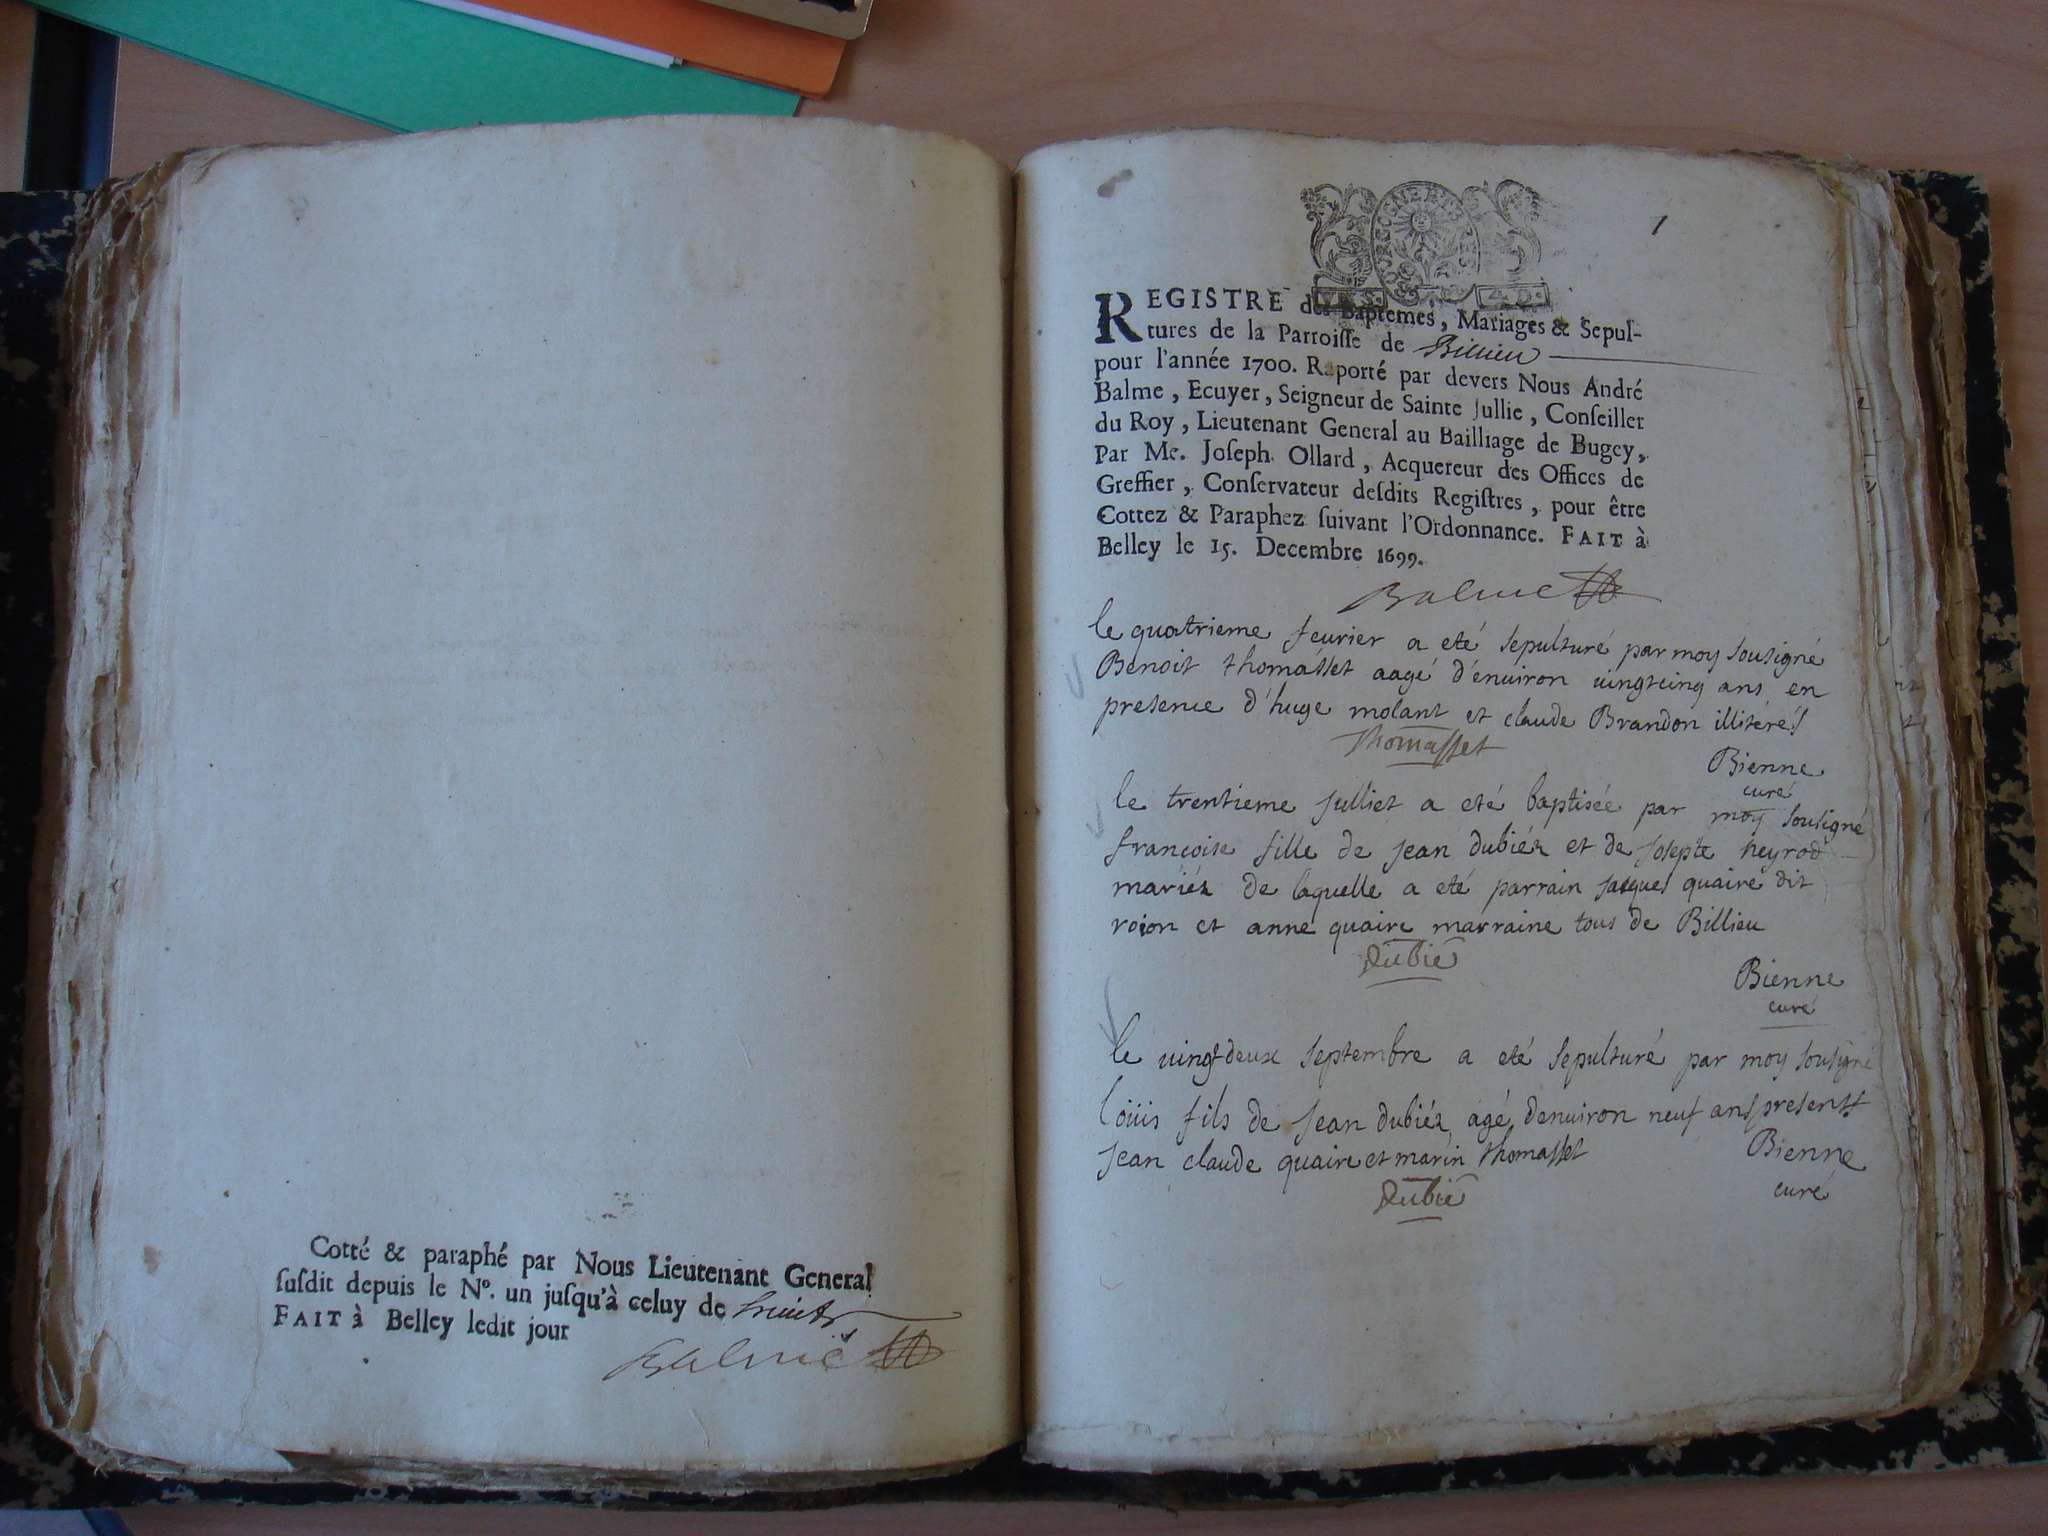 Cotté & paraphé par Nous Lieutenant General
susdit depuis le N°. un jusqu'à celuy de huict
FAIT à Belley ledit jour
Balme
1
REGISTRE des Baptemes, Mariages & Sepul-
tures de la Parroisse de Billieu
pour l'année 1700. Raporté par devers Nous André
Balme, Ecuyer, Seigneur de Sainte Jullie, Conseiller
du Roy, Lieutenant General au Bailliage de Bugey,
Par Me. Joseph Ollard, Acquereur des Offices de
Greffier, Conservateur desdits Registres, pour être
Cottez & Paraphez suivant l'Ordonnance. FAIT à
Belley le 15. Decembre 1699.
Balme
le quatrieme feurier a eté sepulturé par moy sousigné
Benoit thomasset aagé d'énuiron uingtcinq ans en
presence d'huge molant et claude Brandon illitérés
Thomasset
Bienne
curé
le trentieme julliet a eté baptisée par moy sousigné
francoise fille de jean dubiéz et de josepte heyrod
mariéz de laquelle a eté parrain jacques quaire dit
roion et anne quaire marraine tous de Billieu
Dubié
Bienne
curé
le uingtdeux septembre a eté sepulturé par moy sousigné
loüis fils de jean dubiéz agé denuiron neuf ans presents
jean claude quaire et marin thomasset
Bienne
curé
Dubié